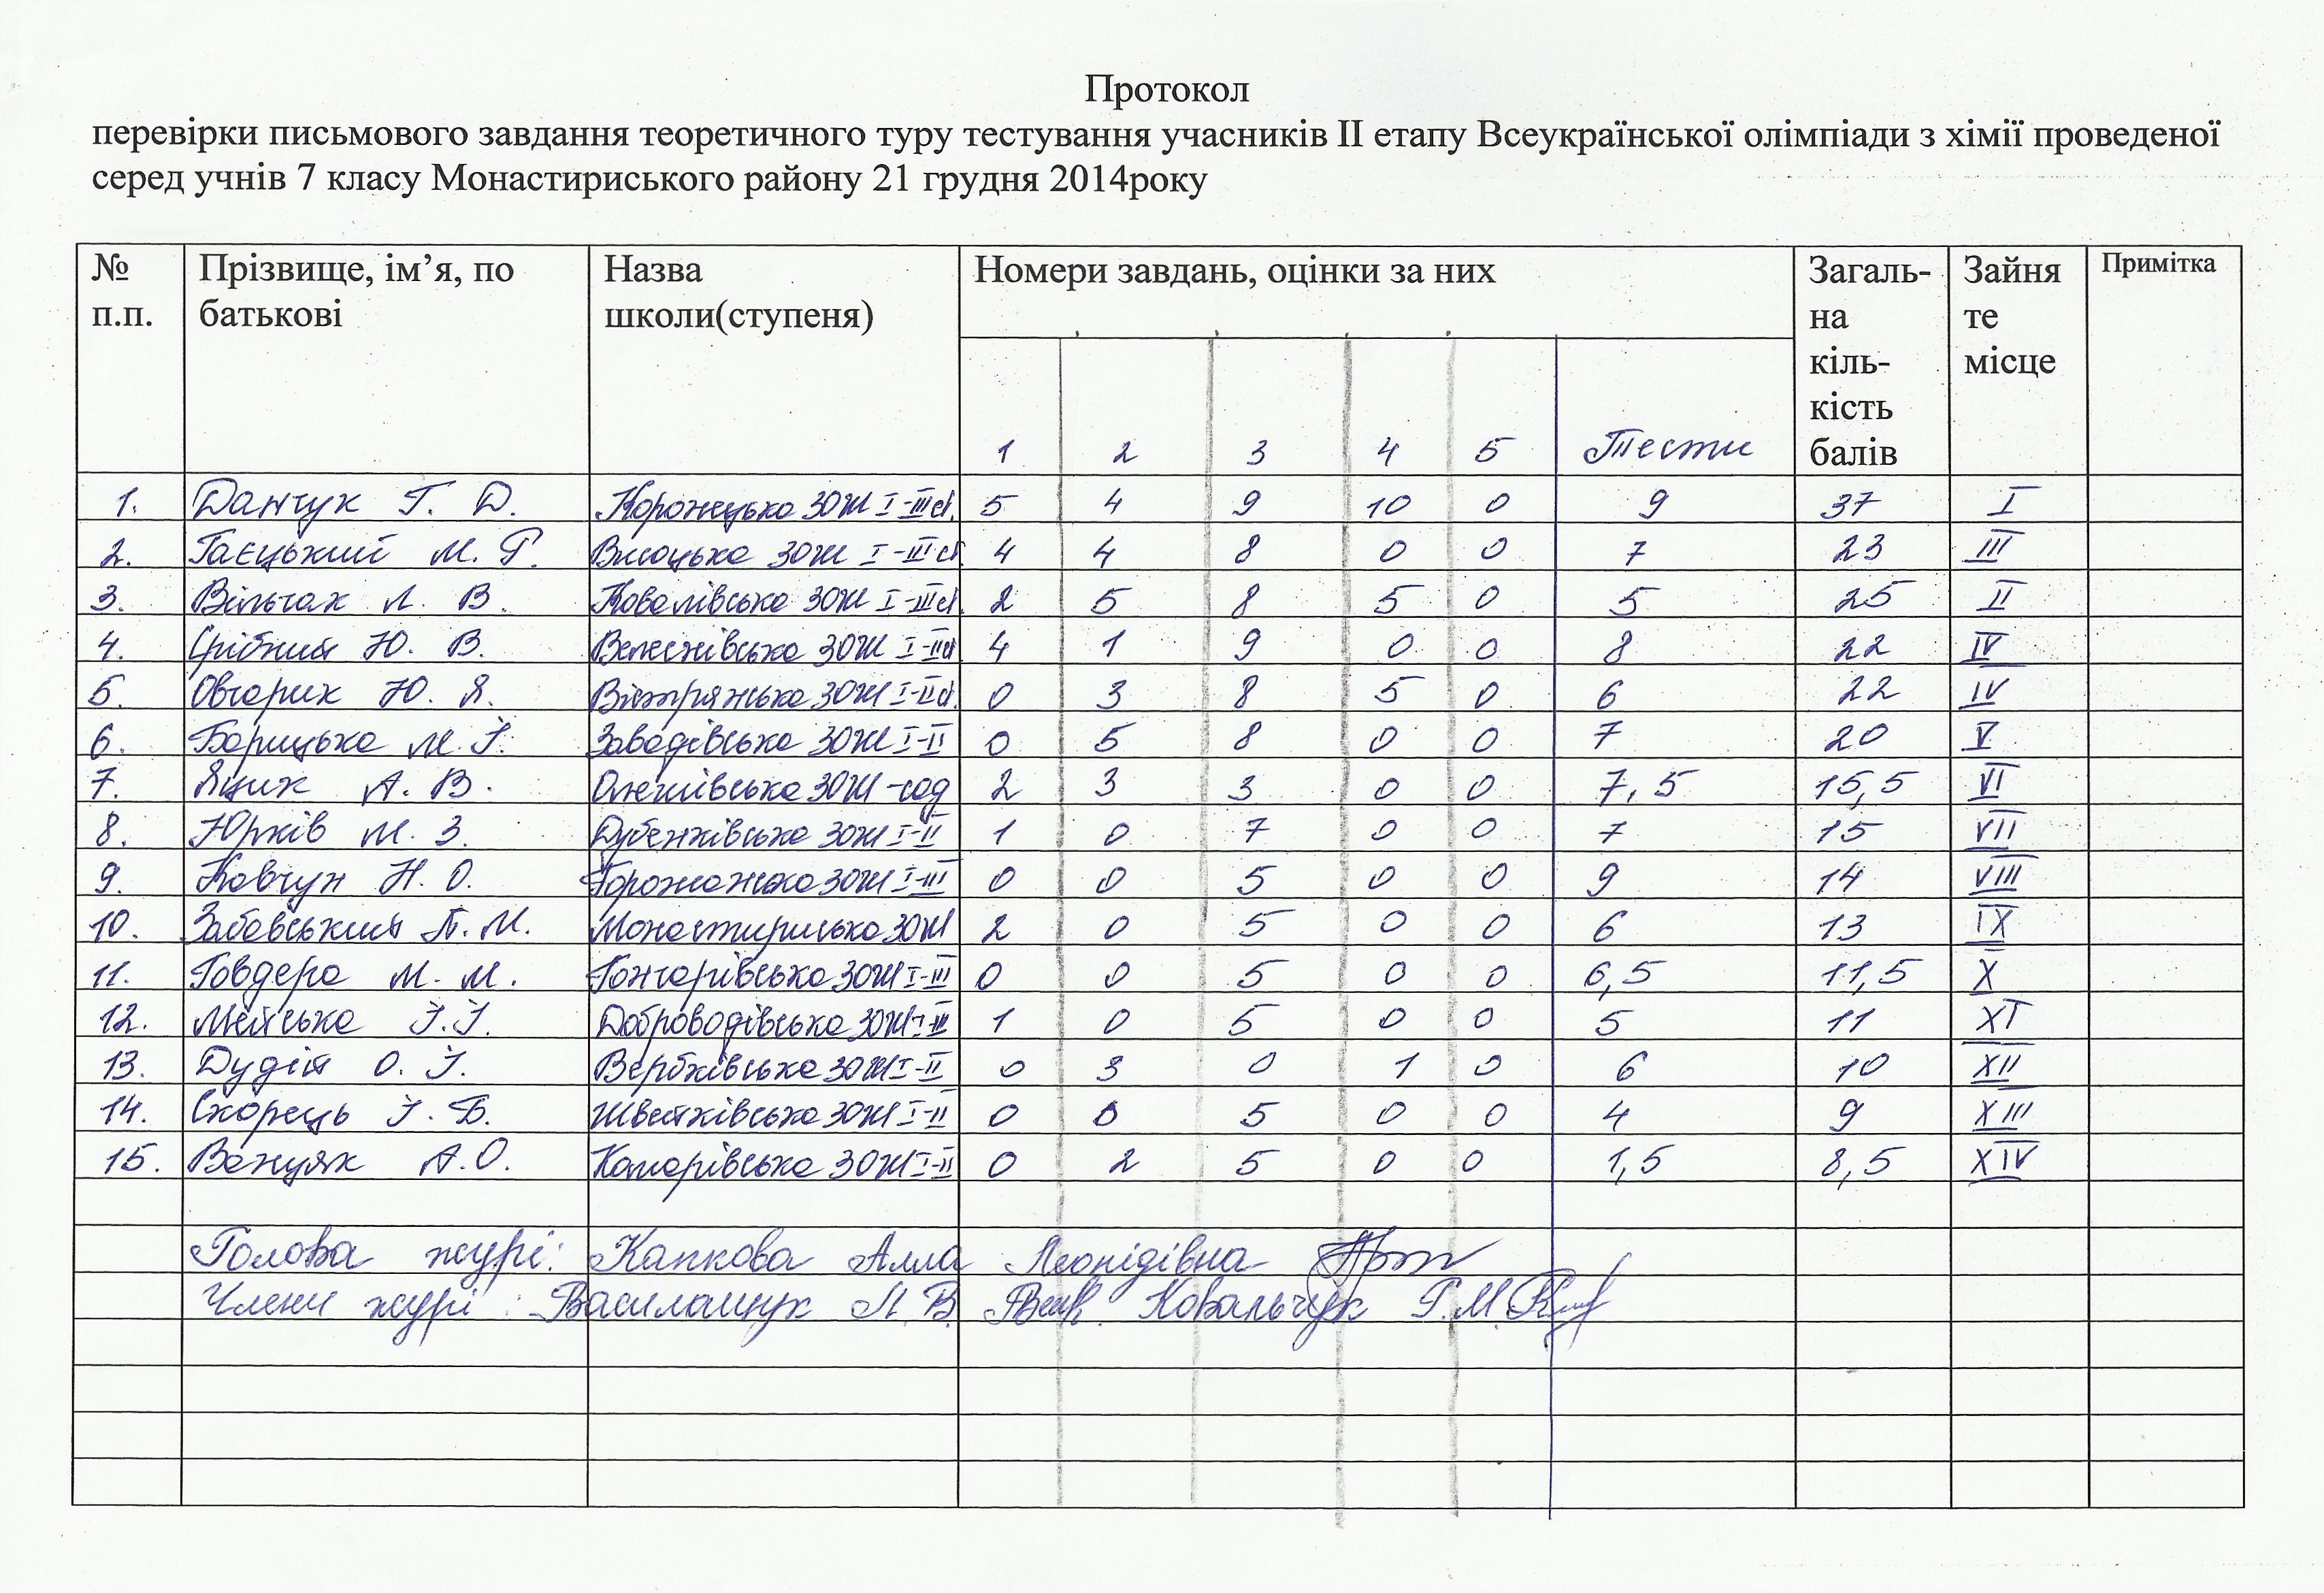 Протокол
перевірки письмового завдання теоретичного туру тестування учасників ІІ етапу Всеукраїнської олімпіади з хімії проведеної
серед учнів 7 класу Монастириського району 21 грудня 2014року
№ п.п. Прізвище, ім’я, по батькові Назва школи(ступеня) Номери завдань, оцінки за них Загаль-на кіль-кість балів Зайня те місце Примітка
1 2 3 4 5 Тести
1. Данчук Г. Д. Корожецька ЗОШ І-ІІІ ст. 5 4 9 10 0 9 37 І
2. Гаєцький М. Г. ЗОШ І-ІІІ ст 4 4 8 0 0 7 23 ІІІ
3. Вільчак Л. В. Ковалівська ЗОШ І-ІІІ ст. 2 5 8 5 0 5 25 ІІ
4. Срібний Ю. В. Велеснівська ЗОШ І-ІІІ ст 4 1 9 0 0 8 22 IV
5. Овчарик Ю. Я. Вістрянська ЗОШ І-ІІ ст. 0 3 8 5 0 6 22 IV
6. Борицька М. І. Завадівська ЗОШ І-ІІ 0 5 8 0 0 7 20 V
7. Яцик А. В. ЗОШ-сад 2 3 3 0 0 7,5 15,5 VI
8. Юрків М. З. Дубенківська ЗОШ І-ІІ 1 0 7 0 0 7 15 VII
9. Ковчун Н. О. Горожанка ЗОШ І-ІІІ 0 0 5 0 0 9 14 VIII
10. Забавський П. М. Монастириська ЗОШ 2 0 5 0 0 6 13 IX
11. Говдера М. М. Гончарівська ЗОШ І-ІІІ 0 0 5 0 0 6,5 11,5 X
12. Мейська І. І. Доброводівська ЗОШ І-ІІІ 1 0 5 0 0 5 11 XI
13. Дудій О. І. Вербківська ЗОШ І-ІІ 0 3 0 1 0 6 10 XII
14. Скорець І. Б. Швейківська ЗОШ І-ІІ 0 0 5 0 0 4 9 XIII
15. Вануяк А. О. Комарівська ЗОШ І-ІІ 0 2 5 0 0 1,5 8,5 XIV
Голова журі: Капкова Алла Леонідівна
Члени журі: Василащук Л. В. Ковальчук Г. М.